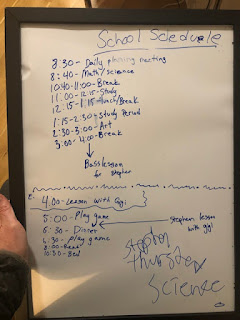 School Scledvale
8:30- Daily planing meeting
8:40- Math/science
10:40-11:00-Break
11:00-12:15-Study
12:15-1:15-Lunch/Break
1:15-2:30-Study Period
2:30-3:00-Art
3:00-4:00-Break
Bass lesson
for Stephen
4:00-Lesson with Ggi
5:00-Play game
Stephen lesson
with ggi
6:30-Dinner
6:30-Play game
8:00-Read
10:30-Bed
Stephen
Thursten
Science